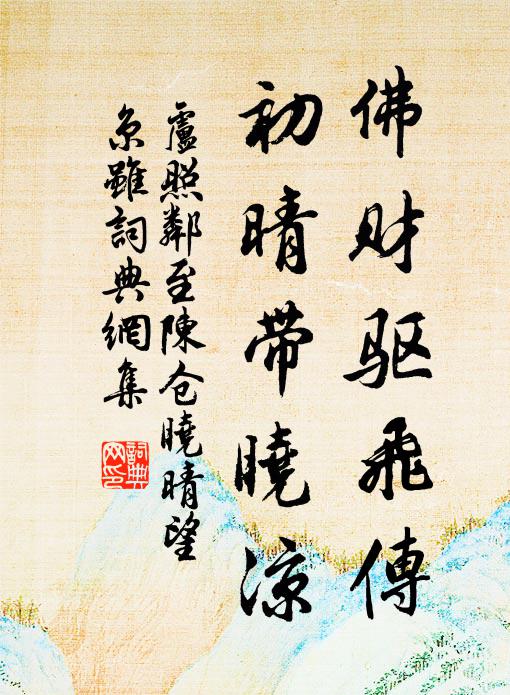 佛财驱飛傳
初晴带曉凉
盧照鄰至陳仓曉晴望
京雖詞典網集
詞典网印